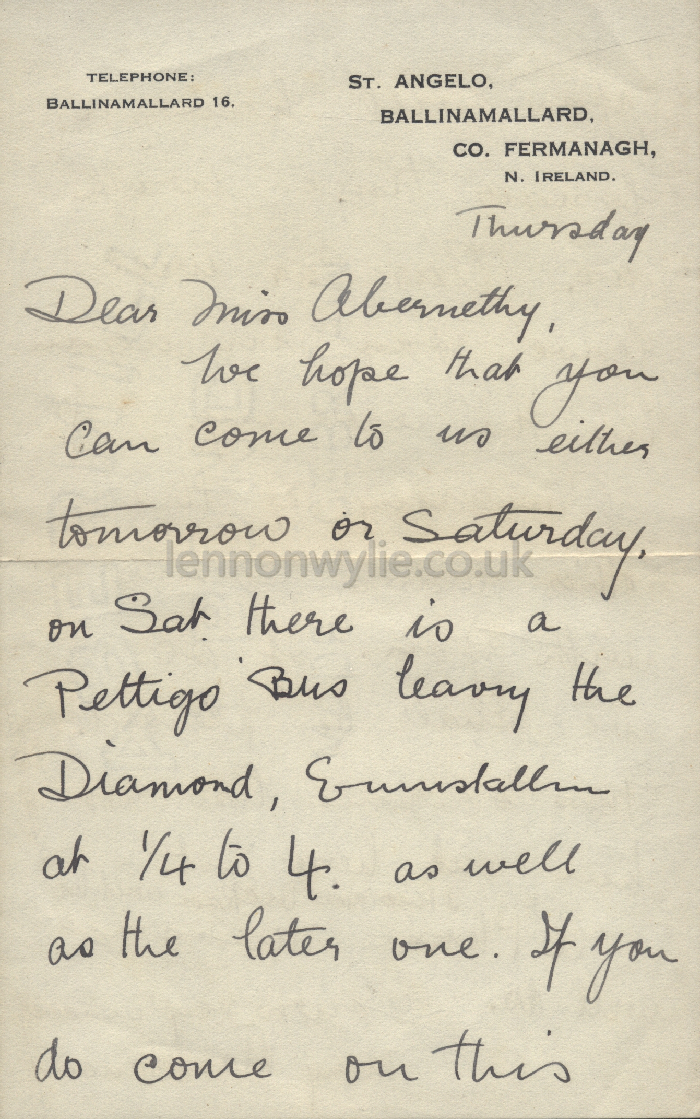 TELEPHONE:
BALLINAMALLARD 16.
ST. ANGELO,
BALLINAMALLARD,
CO. FERMANAGH,
N. IRELAND.
Thursday
Dear Miss Abernethy,
We hope that you
can come to us either
tomorrow or Saturday.
lennonwylie.co.uk
on Sat. there is a
Pettigo Bus leaving the
Diamond, Enniskillen
at 1/4 to 4. as well
as the later one. If you
do come on this